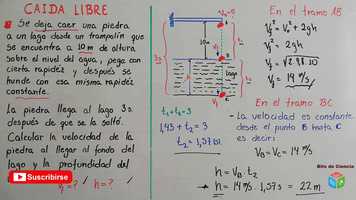 CAIDA LIBRE
Se deja caer una piedra
a un lago desde un trampolín que
se encuentra a 10m de altura
sobre el nivel del agua, pega con
cierta rapidez y después se
hunde con esa misma rapidez
constante.
La piedra llega al lago 3s.
después de que se la soltó.
Calcular la velocidad de la
piedra al llegar al fondo del
lago y la profundidad del
Suscribirse
h = ?
10m
lago
A
B
C
t₁+t₂=3
1,43 + t₂ = 3
t₂ = 1,57s
En el tramo AB
Vf² = Vo² + 2gh
Vf² = 2gh
Vf = 14 m/s
En el tramo BC
- La velocidad es constante
desde el punto B hasta C
es decir:
VB = Vc = 14 m/s
h = VB . t₂
h = 14 m/s . 1,57s = 22m
Bits de Ciencia